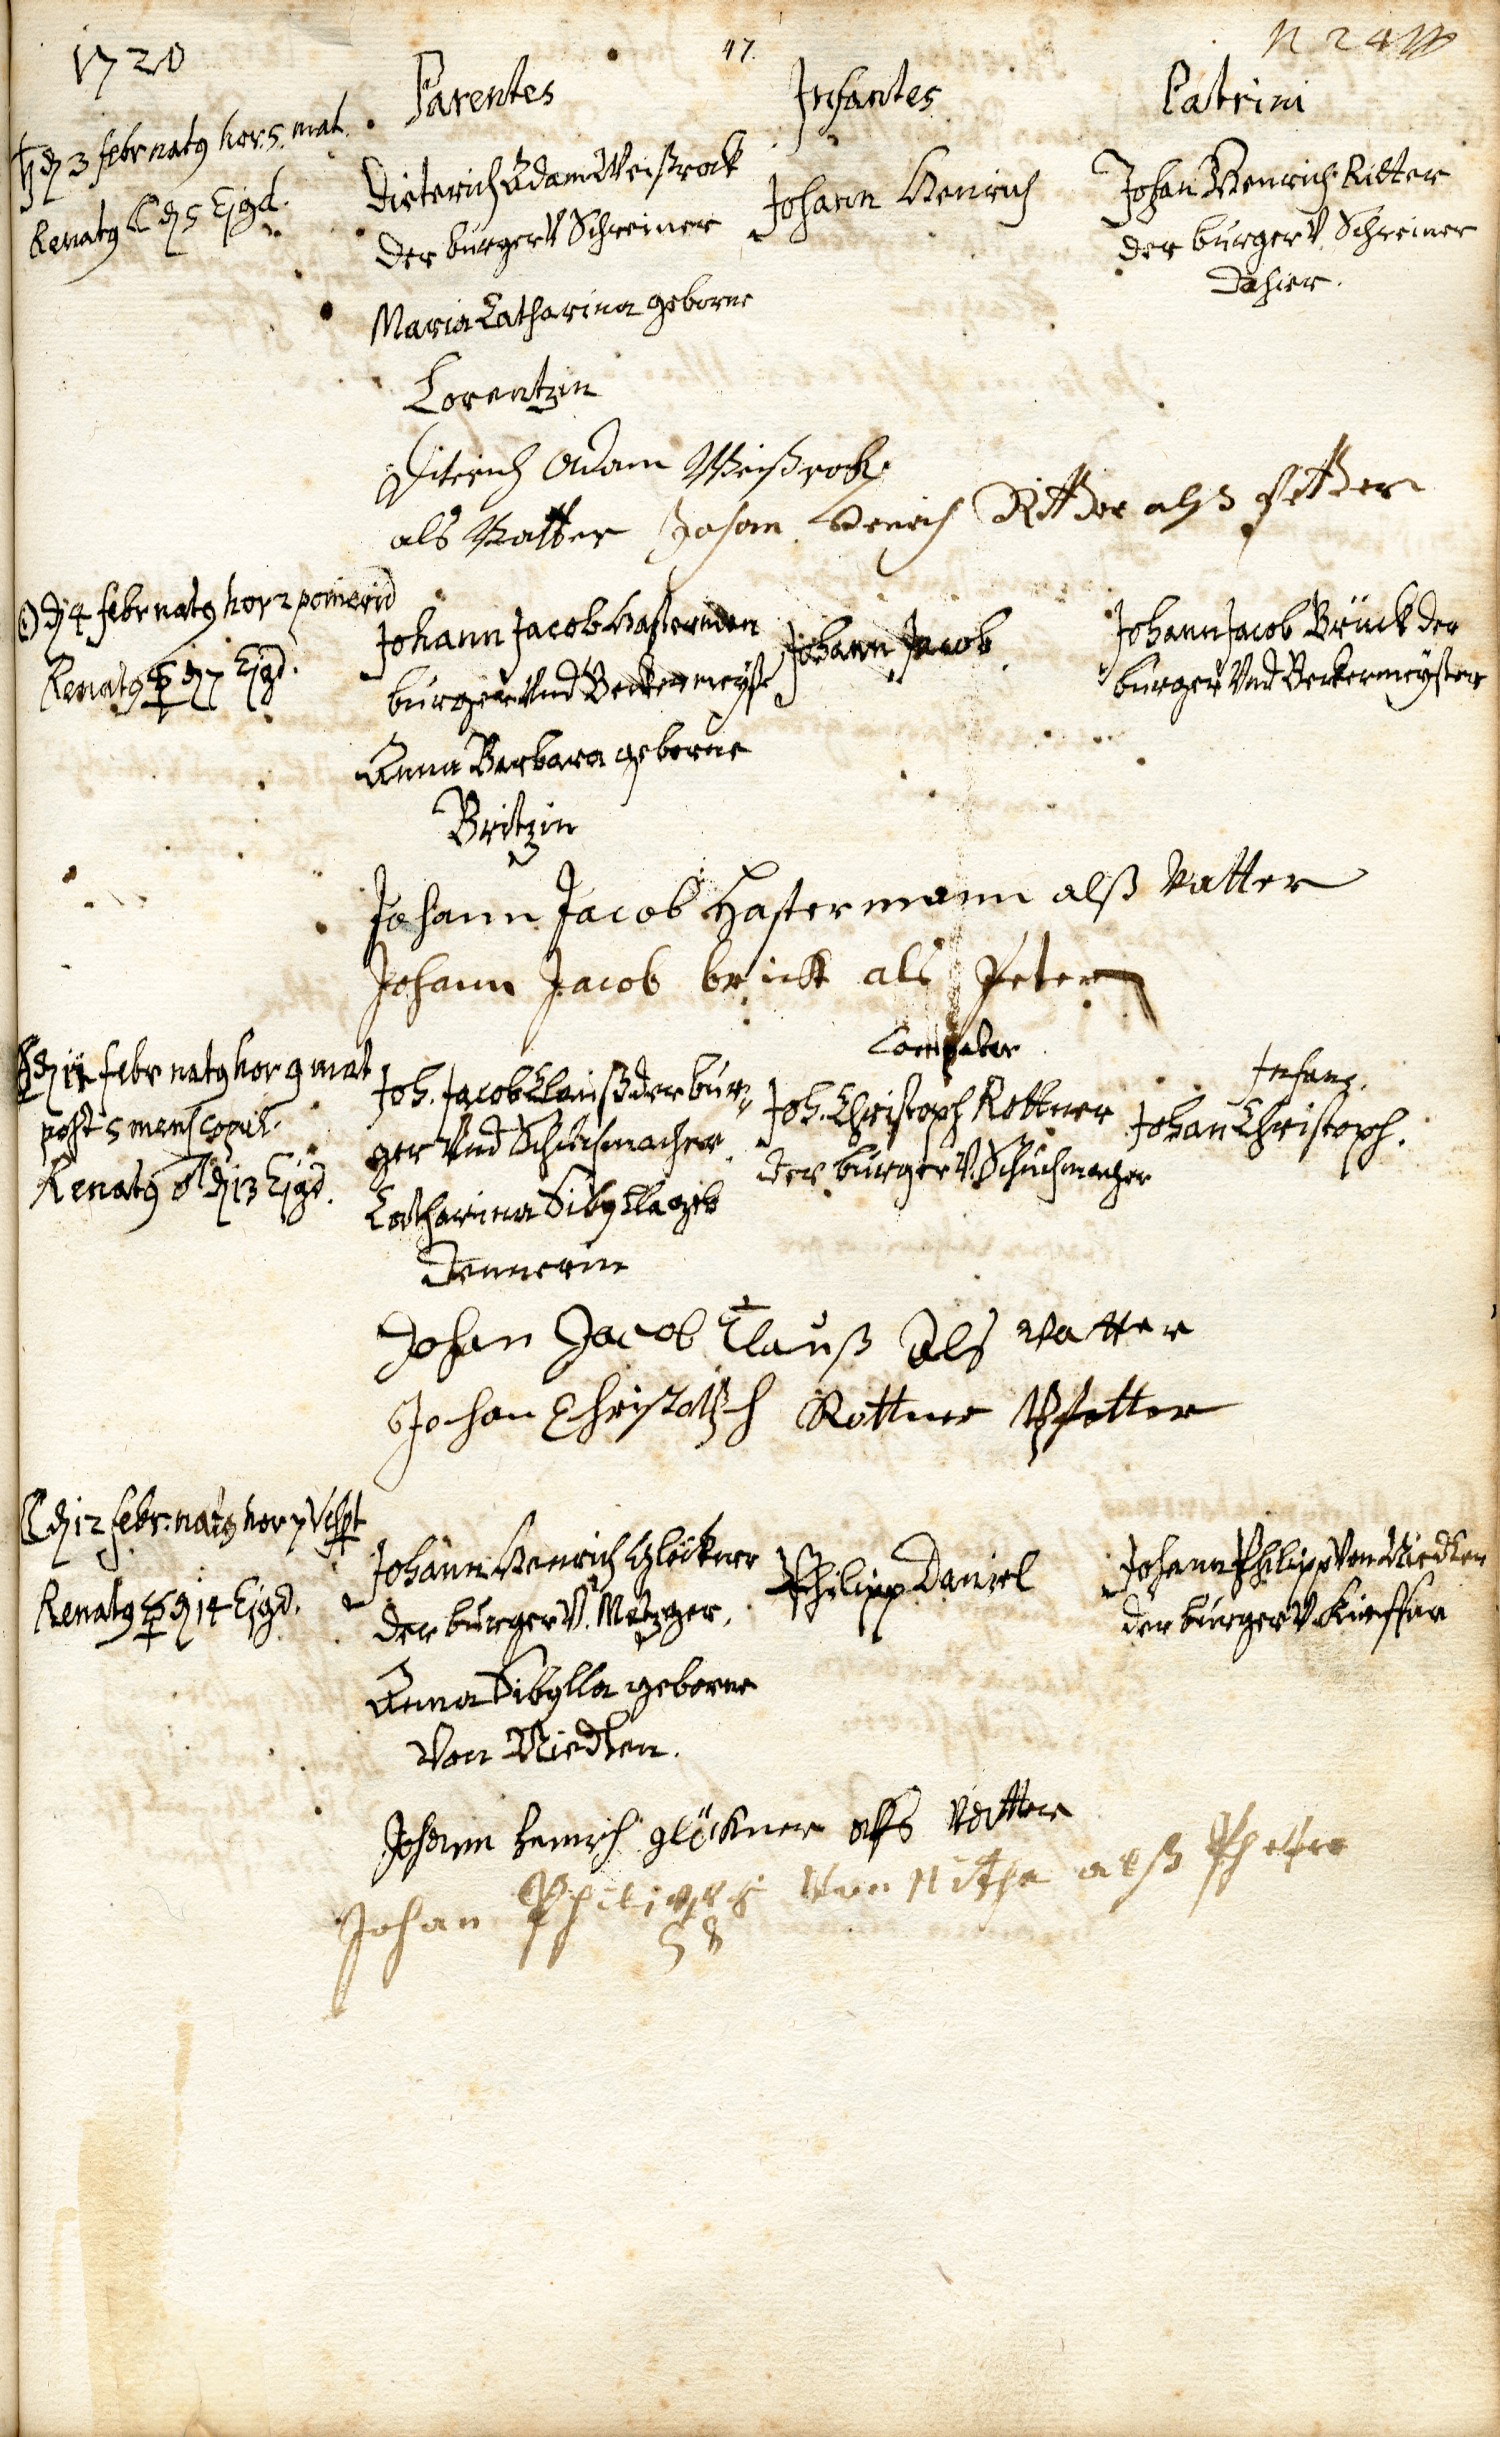 1720
47.
Parentes
Infantes
Patrini
♄ d 3 febr natg hor. 5. mat.
Renatg ☾ d 5 Ejgd.
Dieterich Adam Weißrock
der burger V Schreiner
Maria Catharina geborne
Lorentzin
Johann Henrich
Johan Henrich Ritter
der burger V. Schreiner
dahier.
Diterich Adam Weißrock
als Vatter Johan Henrich Ritter alß Petter
☉ d 4 febr natg hor 2 pomerid
Renatg ☿ d 7 Ejgd.
Johann Jacob
burger Vnd Beckermeyster
Anna Barbara geborne
Britzin
Johann Jacob
Johann Jacob Brück der
burger Vnd Beckermeyster
Johann Jacob Hastermann alß Vatter
Johann Jacob brückt als Peter
d 11 febr natg hor 9 mat
post 5 mens copul.
Renatg ♂ d 13 Ejgd.
Joh. Jacob Clauß der bur-
ger Vnd Schuchmacher.
Catharina Sibylla geb
Dennerin
Compater
Joh. Christoph Rottner
der burger V. Schuchmacher
Infans.
Johan Christoph.
Johan Jacob Clauß Als Vatter
Johan Christoph Rottner Pfetter
☾ d 12 febr. natg hor 7 Vespt
Renatg ☿ d 14 Ejgd.
Johann Henrich Glöckner
der burger V. Metzger.
Anna Sibylla geborne
Von Niedten.
Philipp Daniel
Johann Philipp Von Niedten
der burger V Kieffer
Johann Henrich glöckner als Vatter
Johan Philips Von alß Pfetter